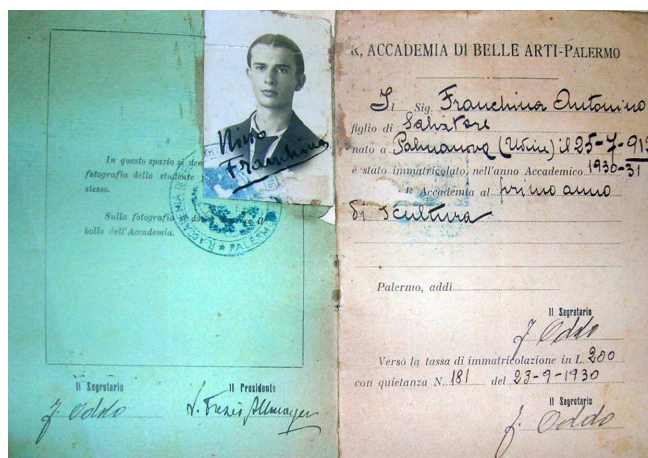 In questo spazio si
fotografia dello studente
stesso.
Sulla fotografia
bollo dell'Accademia.
Nino
Franchina
R. ACCADEMIA
PALERMO
Il Segretario
Il Presidente
J. Oddo
R. ACCADEMIA DI BELLE ARTI-PALERMO
Il Sig. Franchina Antonino
figlio di Salvatore
nato a Palmanova (Udine) il 25-7-912
è stato immatricolato, nell'anno Accademico 1930-31
R. Accademia al primo anno
di Scultura
Palermo, addì
Il Segretario
J. Oddo
Versò la tassa di immatricolazione in L. 200
con quietanza N. 181 del 23-9-1930
Il Segretario
J. Oddo